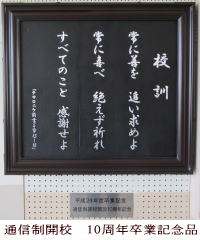 校訓
常に善を 追い求めよ
常に喜べ 絶えず祈れ
すべてのこと 感謝せよ
平成24年度卒業記念
通信制開校 10周年卒業記念品